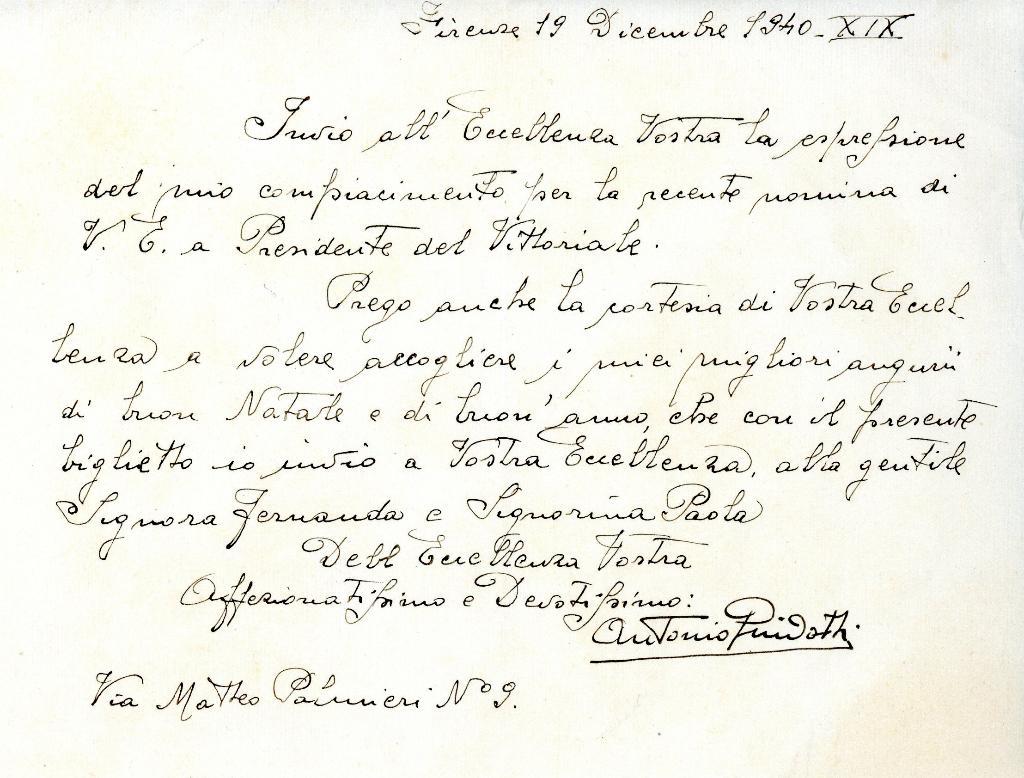 Firenze 19 Dicembre 1940 - XIX
Invio all'Eccellenza Vostra la espressione
del mio compiacimento per la recente nomina di
V. E. a Presidente del Vittoriale.
Prego anche la cortesia di Vostra Eccel-
lenza a volere accogliere i miei migliori augurii
di buon Natale e di buon'anno, che con il presente
biglietto io invio a Vostra Eccellenza, alla gentile
Signora Fernanda e Signorina Paola
Dell Eccellenza Vostra
Affezionatissimo e Devotissimo:
Antonio Guidotti
Via Matteo Palmieri Nº 9.